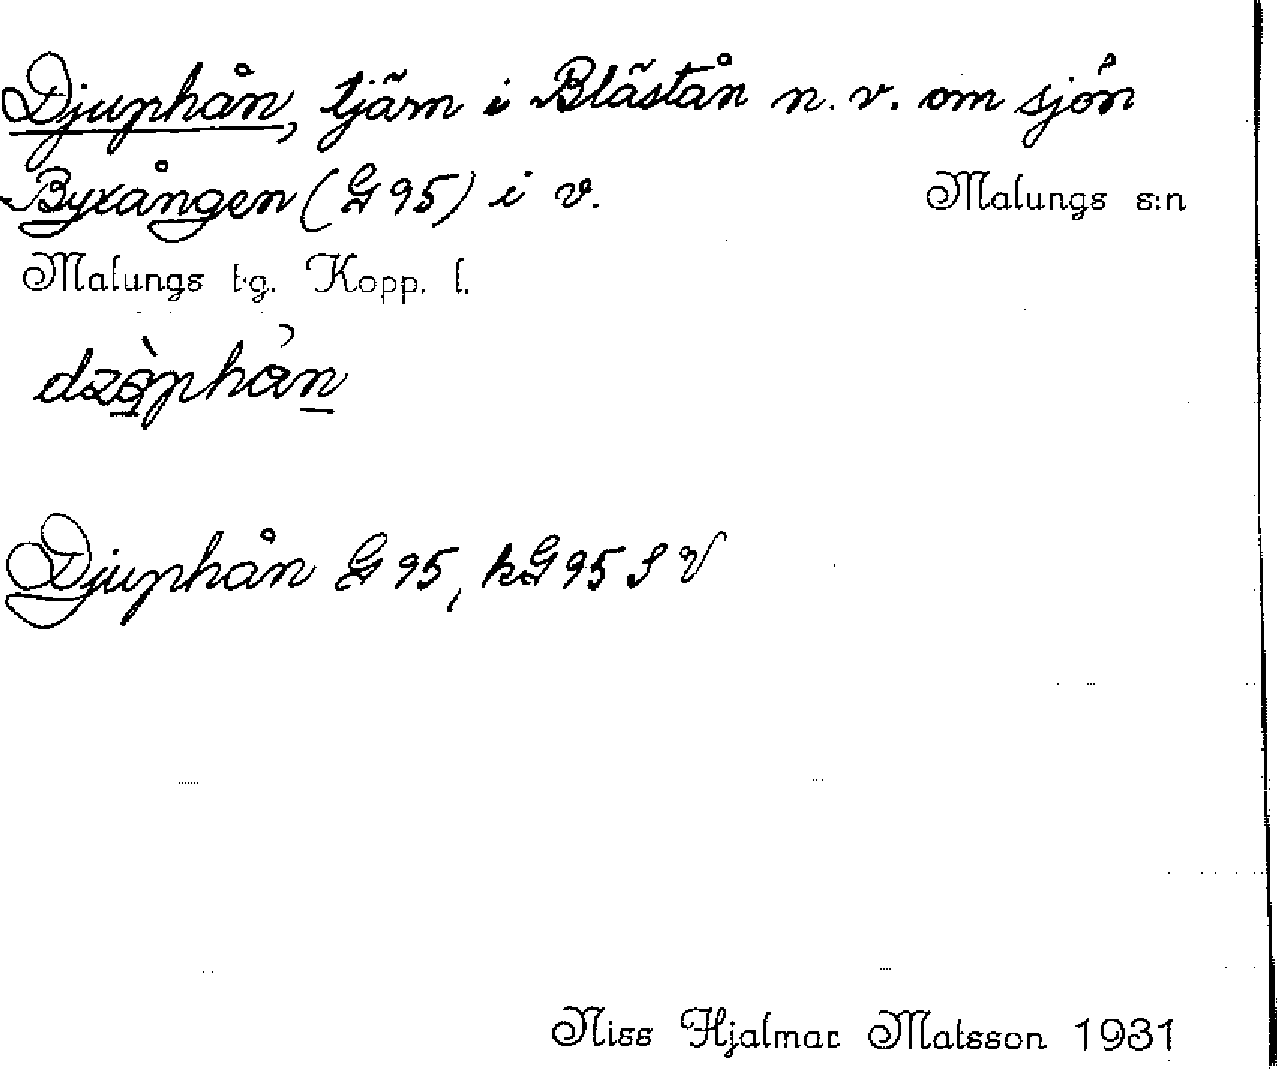 Djuphån, tjärn i Blästån n.v. om sjön
Byxången (G 95) i v. Malungs s:n
Malungs tg. Kopp. l.
Djuphån G 95, kG 95 S V
Niss Hjalmar Matsson 1931